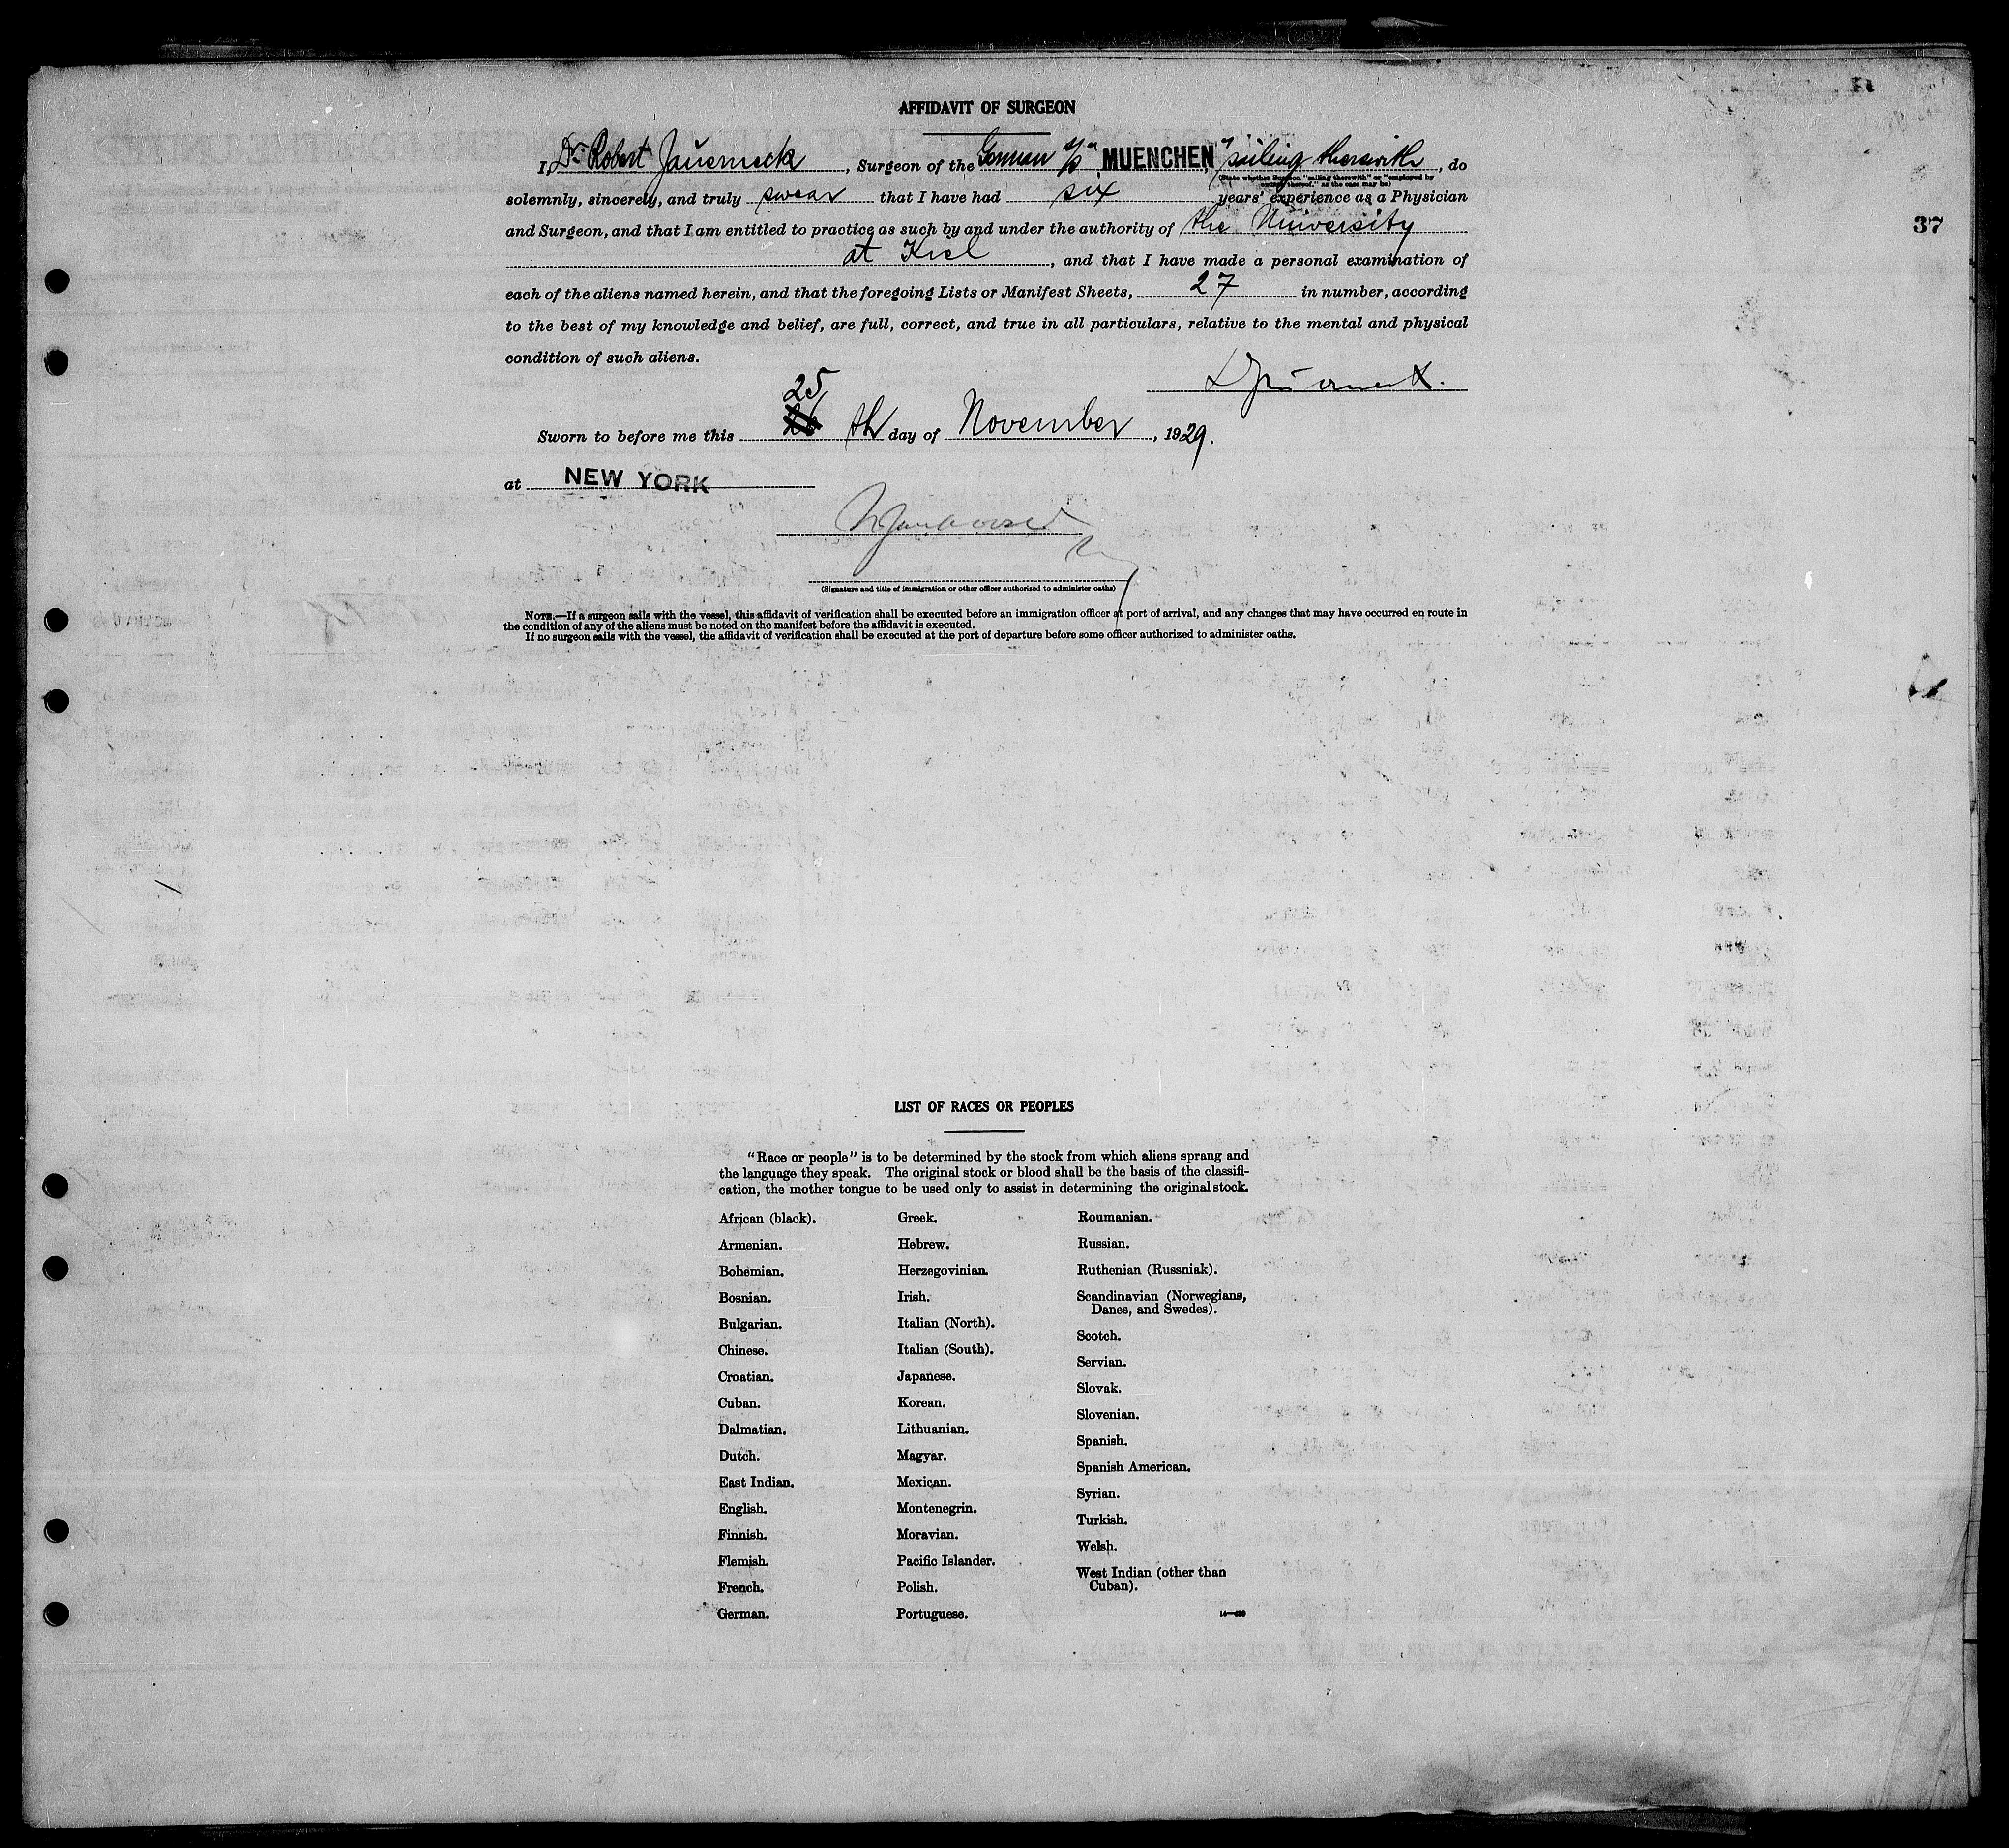 AFFIDAVIT OF SURGEON
I, Dr. Robert Jauerneck, Surgeon of the German s/s " MUENCHEN, " sailing therewith, do
(State whether Surgeon "sailing therewith" or "employed by
owners thereof," as the case may be)
solemnly, sincerely, and truly swear that I have had six years' experience as a Physician
37
and Surgeon, and that I am entitled to practice as such by and under the authority of the University
at Kiel, and that I have made a personal examination of
each of the aliens named herein, and that the foregoing Lists or Manifest Sheets, 27 in number, according
to the best of my knowledge and belief, are full, correct, and true in all particulars, relative to the mental and physical
condition of such aliens.
25
Sworn to before me this 26 th day of November, 1929.
at NEW YORK
(Signature and title of immigration or other officer authorized to administer oaths)
NOTE.—If a surgeon sails with the vessel, this affidavit of verification shall be executed before an immigration officer at port of arrival, and any changes that may have occurred en route in
the condition of any of the aliens must be noted on the manifest before the affidavit is executed.
If no surgeon sails with the vessel, the affidavit of verification shall be executed at the port of departure before some officer authorized to administer oaths.
LIST OF RACES OR PEOPLES
"Race or people" is to be determined by the stock from which aliens sprang and
the language they speak. The original stock or blood shall be the basis of the classifi-
cation, the mother tongue to be used only to assist in determining the original stock.
African (black).
Armenian.
Bohemian.
Bosnian.
Bulgarian.
Chinese.
Croatian.
Cuban.
Dalmatian.
Dutch.
East Indian.
English.
Finnish.
Flemish.
French.
German.
Greek.
Hebrew.
Herzegovinian.
Irish.
Italian (North).
Italian (South).
Japanese.
Korean.
Lithuanian.
Magyar.
Mexican.
Montenegrin.
Moravian.
Pacific Islander.
Polish.
Portuguese.
Roumanian.
Russian.
Ruthenian (Russniak).
Scandinavian (Norwegians,
Danes, and Swedes).
Scotch.
Servian.
Slovak.
Slovenian.
Spanish.
Spanish American.
Syrian.
Turkish.
Welsh.
West Indian (other than
Cuban).